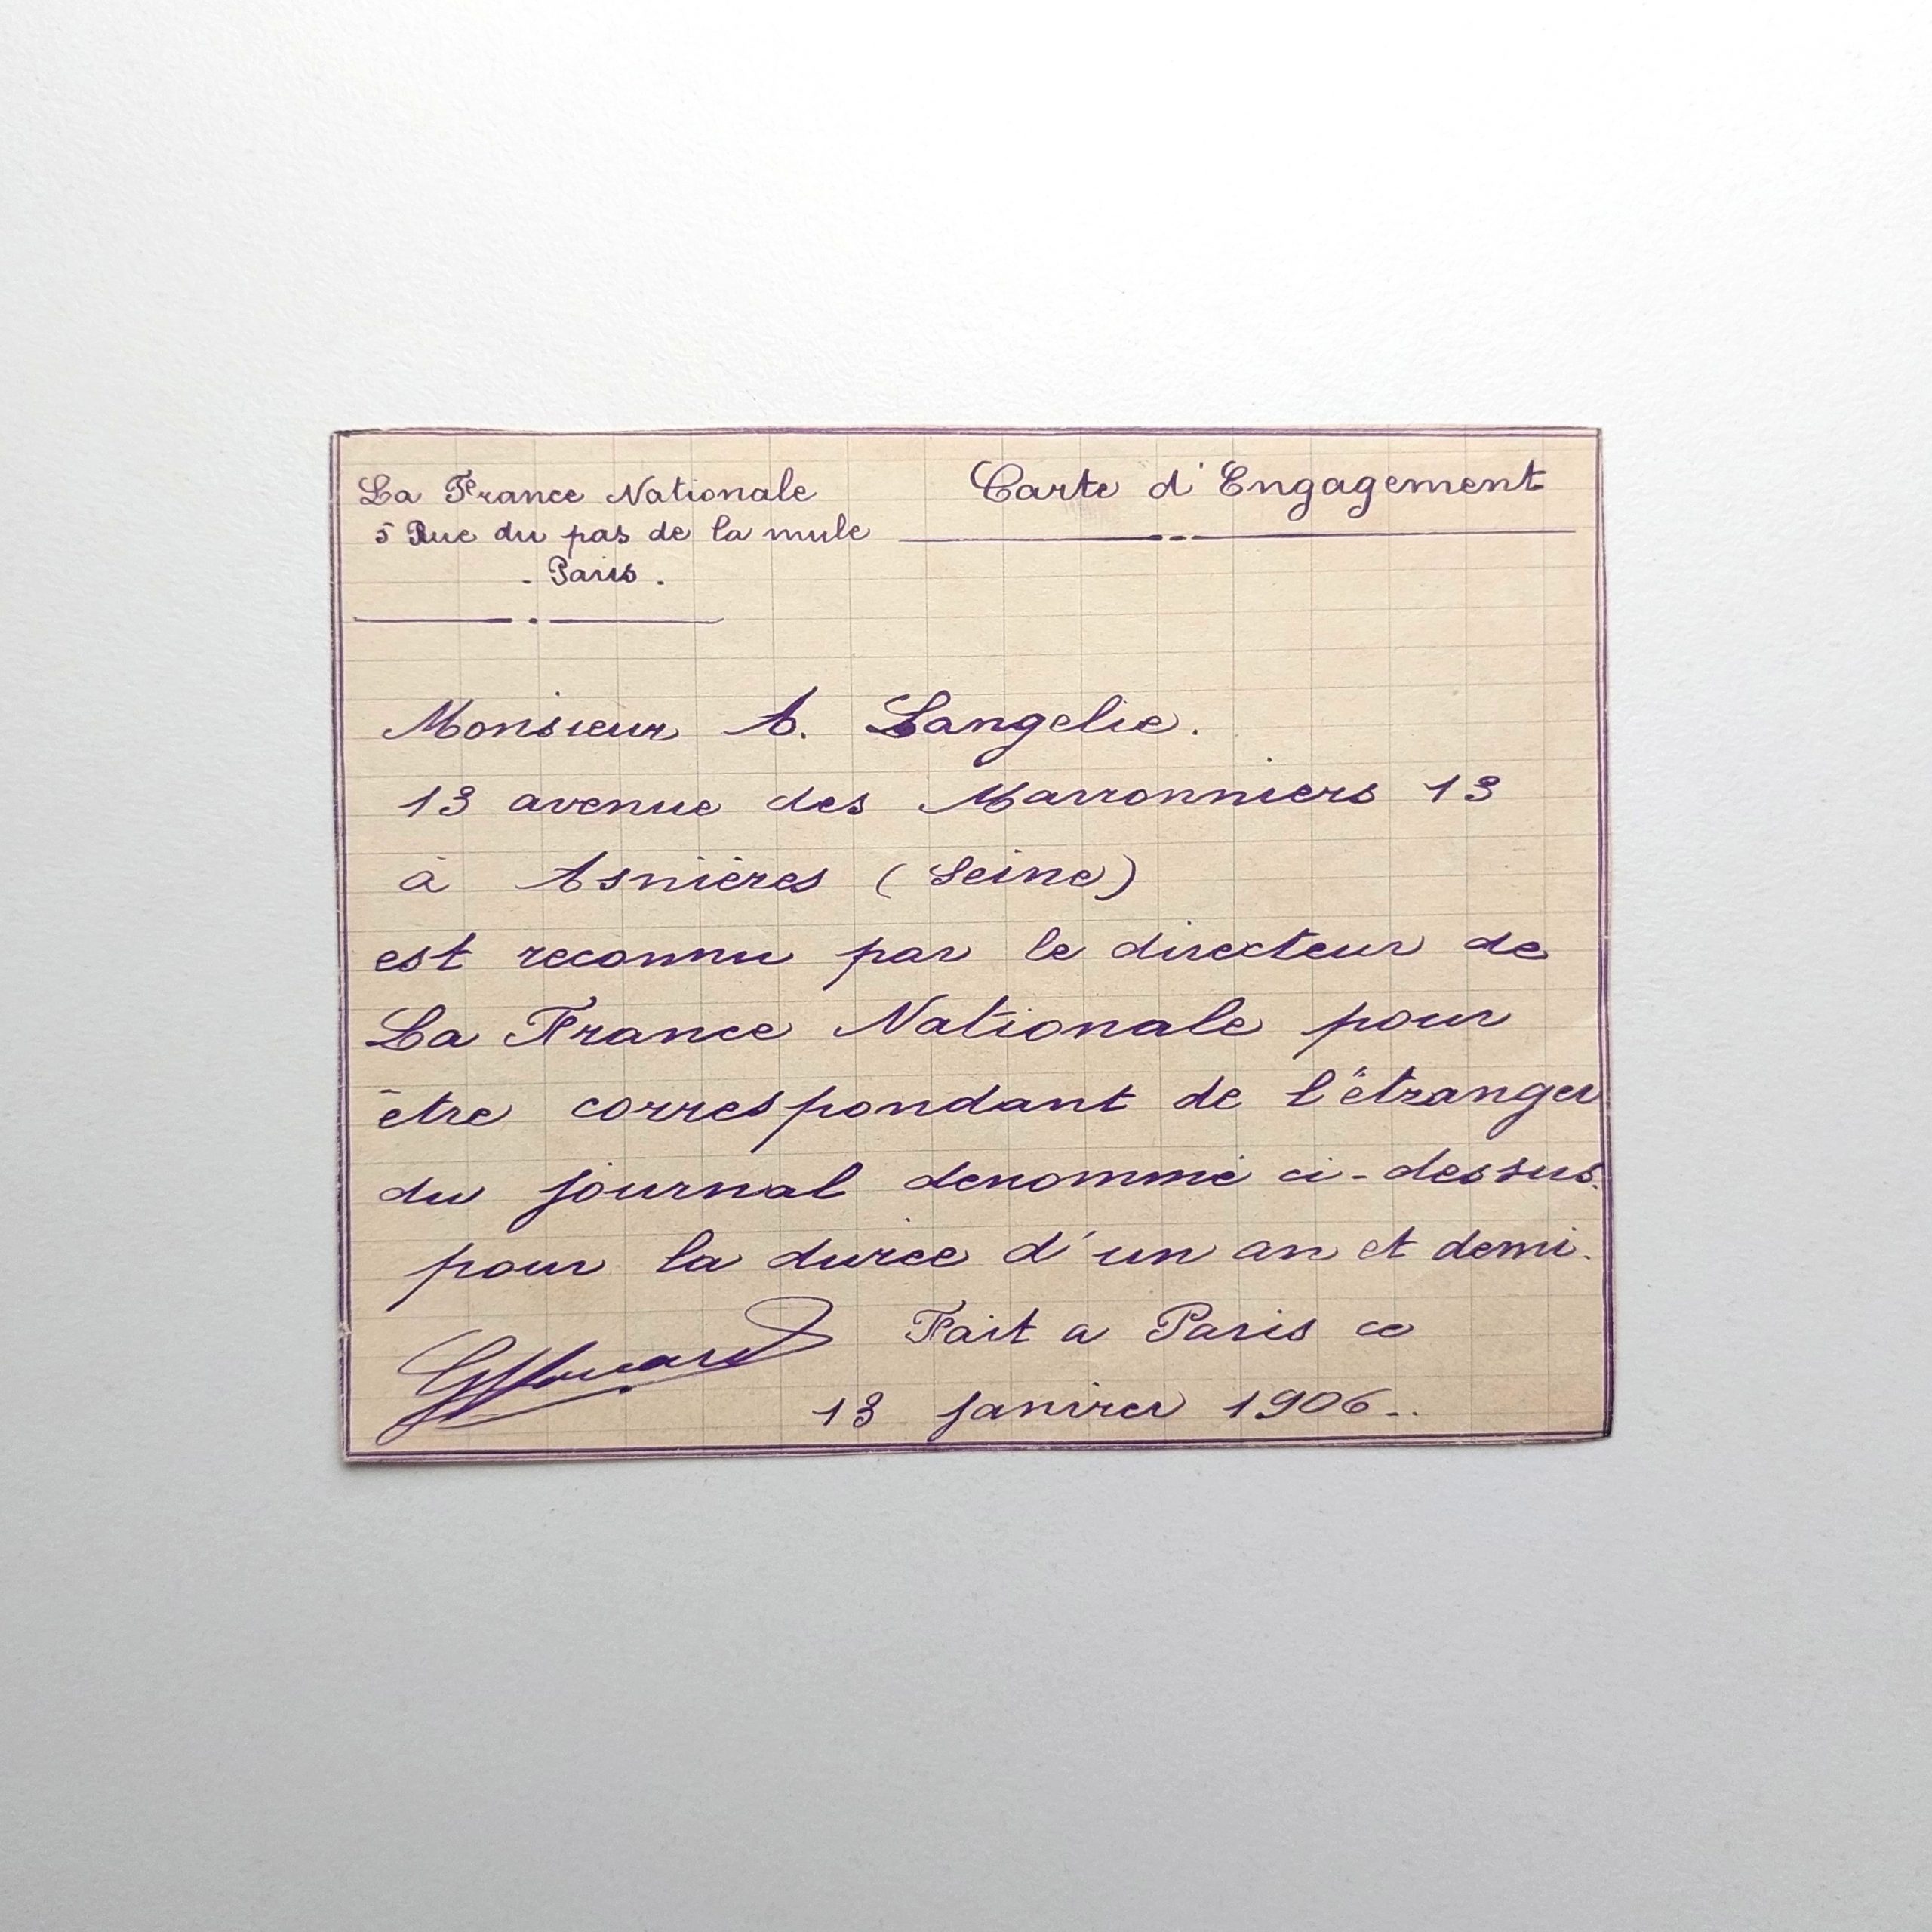 La France Nationale
Carte d'Engagement
5 Rue du pas de la mule
- Paris .
Monsieur A. Langelie.
13 avenue des Marronniers 13
à Asnières (Seine)
est reconnu par le directeur de
La France Nationale pour
être correspondant de l'étranger
du journal denommé ci-dessus.
pour la durée d'un an et demi.
Fait a Paris ce
13 janvier 1906..